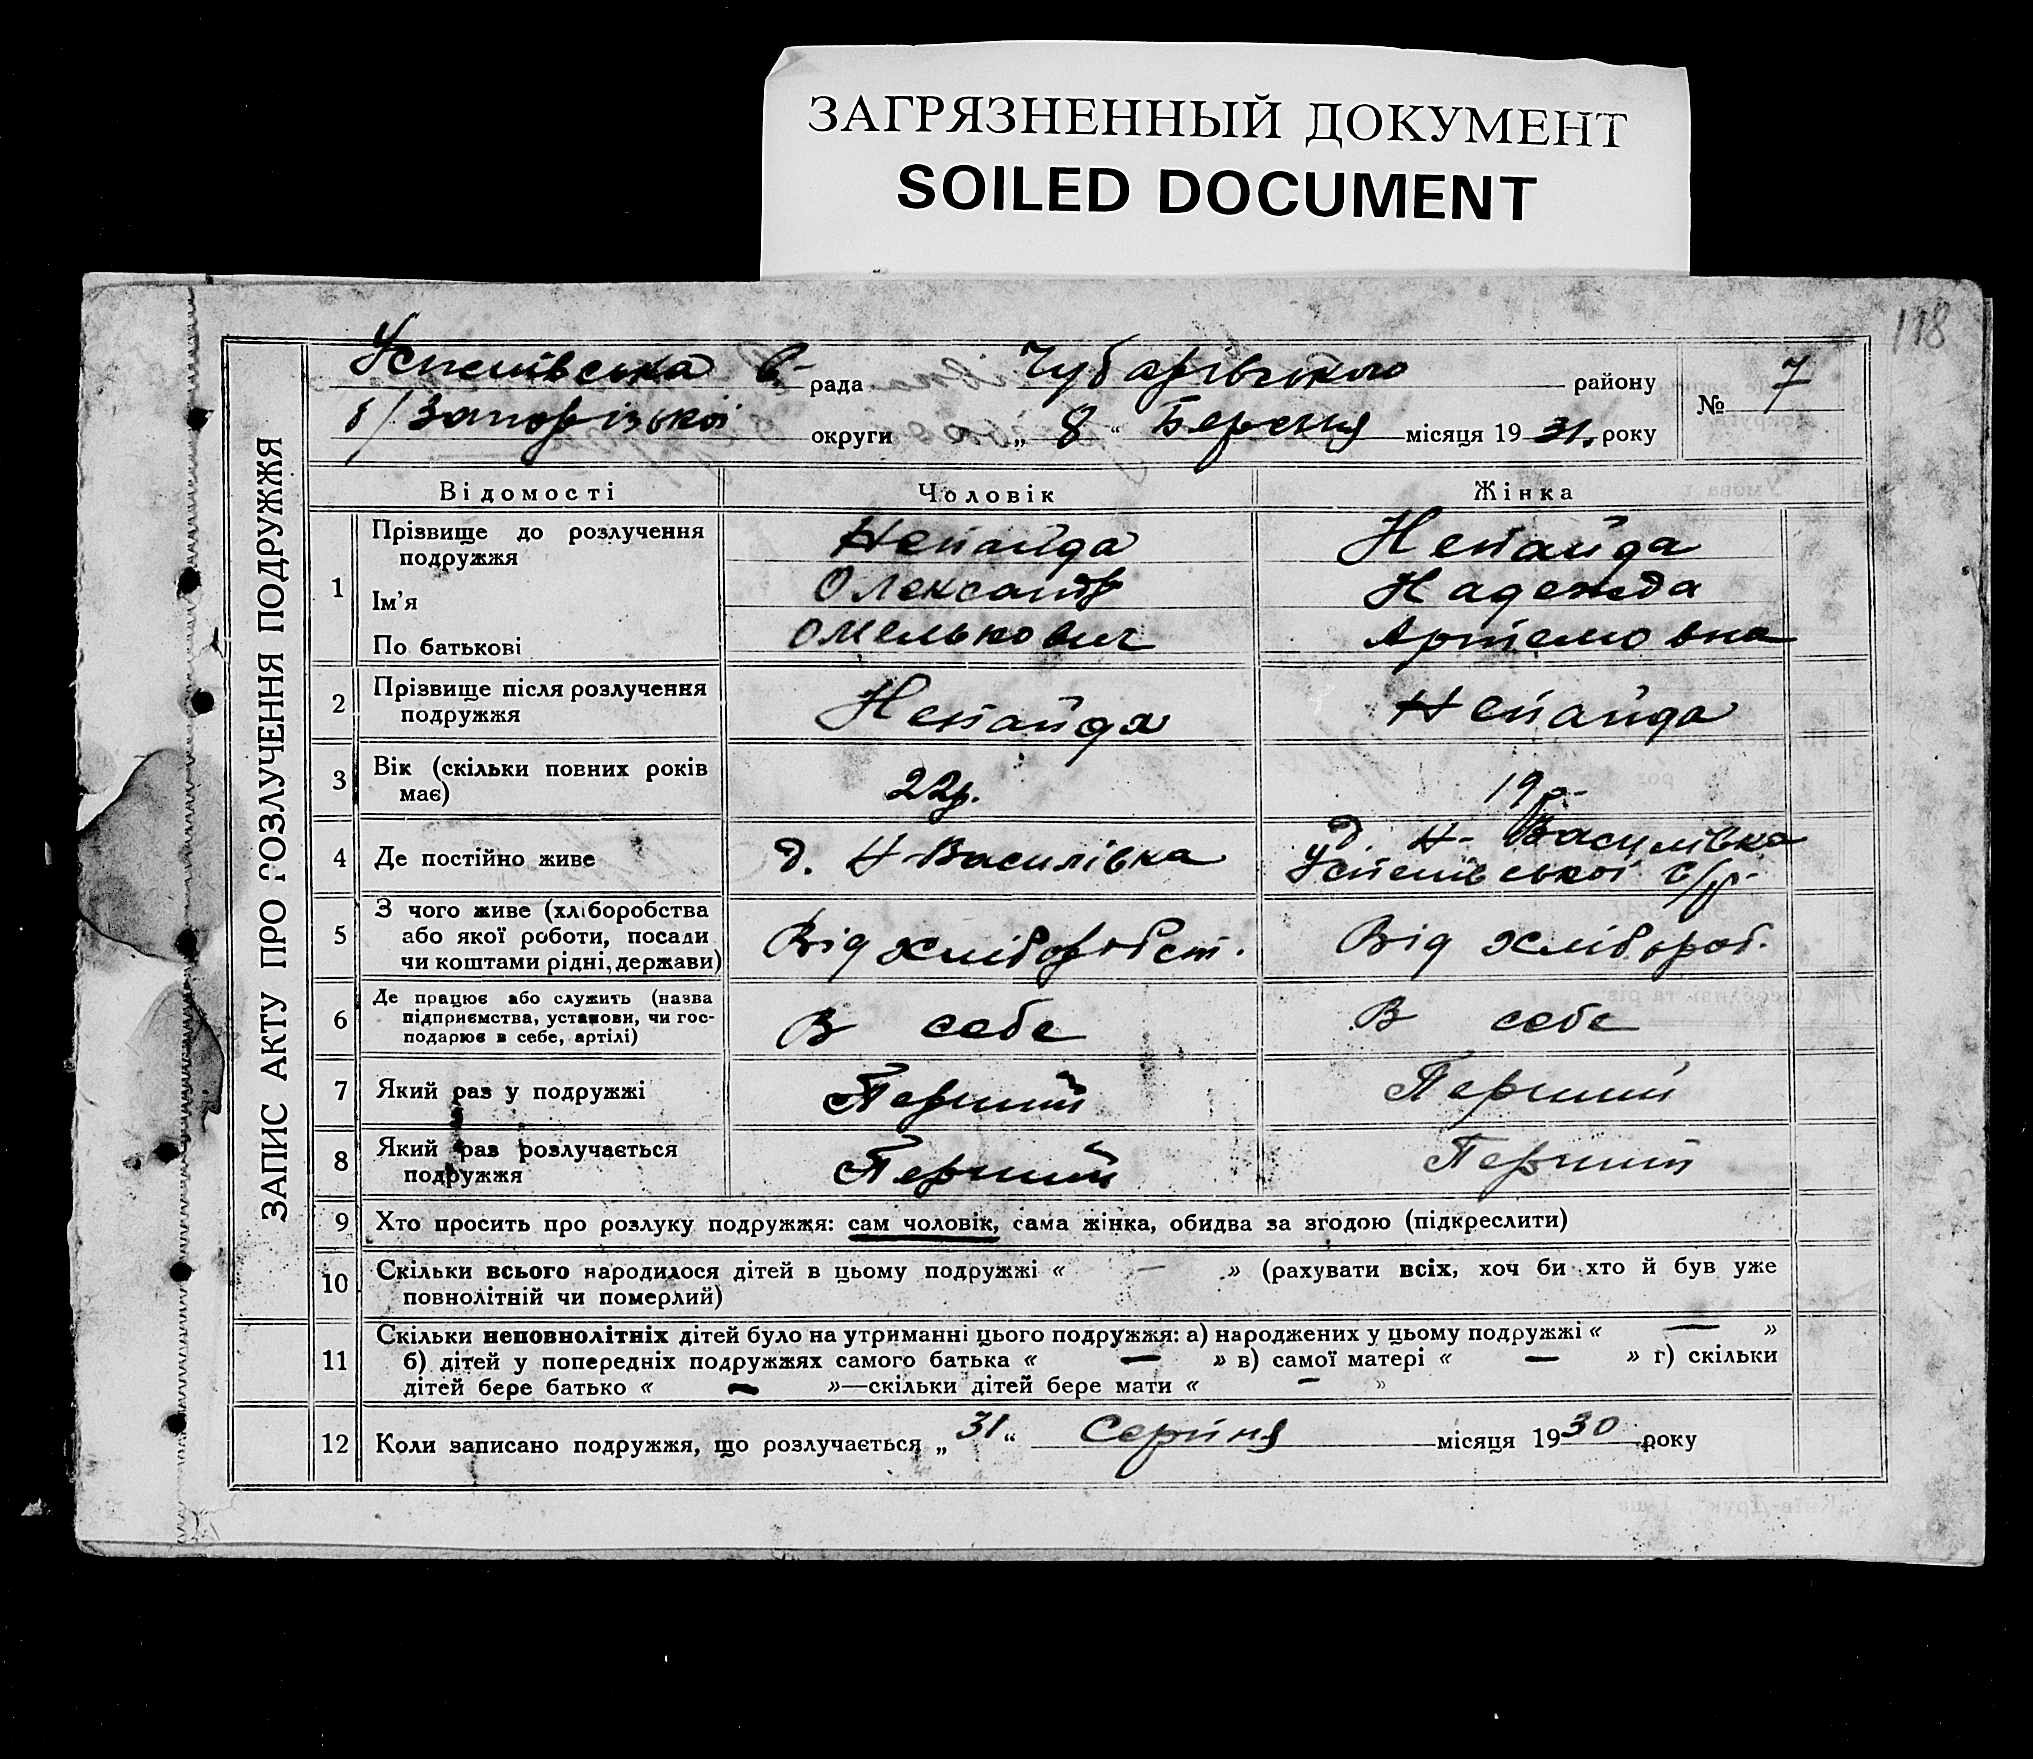 ЗАГРЯЗНЕННЫЙ ДОКУМЕНТ
SOILED DOCUMENT
118
ЗАПИС АКТУ ПРО РОЗЛУЧЕННЯ ПОДРУЖЖЯ
Успенівська с- рада Чубарівського району № 7
б/Запорізької округи „ 8 “ Березня місяця 1931. року
Відомості Чоловік Жінка
1 Прізвище до розлучення подружжя Непайда Непайда
Ім’я Олександр Надежда
По батькові Омелькович Артемовна
2 Прізвище після розлучення подружжя Непайда Непайда
3 Вік (скільки повних років має) 22р. 19р.
4 Де постійно живе д. Н-Василівка д. Н-Василівка
Успенівської с/р.
5 З чого живе (хліборобства або якої роботи, посади чи коштами рідні, держави) Від хліборобст. Від хлібороб.
6 Де працює або служить (назва підприємства, установи, чи господарює в себе, артілі) В себе В себе
7 Який раз у подружжі Перший Перший
8 Який раз розлучається подружжя Перший Перший
9 Хто просить про розлуку подружжя: сам чоловік, сама жінка, обидва за згодою (підкреслити)
10 Скільки всього народилося дітей в цьому подружжі « — » (рахувати всіх, хоч би хто й був уже
повнолітній чи померлий)
11 Скільки неповнолітніх дітей було на утриманні цього подружжя: а) народжених у цьому подружжі « — »
б) дітей у попередніх подружжях самого батька « — » в) самої матері « — » г) скільки
дітей бере батько « — »—скільки дітей бере мати « — »
12 Коли записано подружжя, що розлучається „ 31 “ Серпня місяця 1930 року